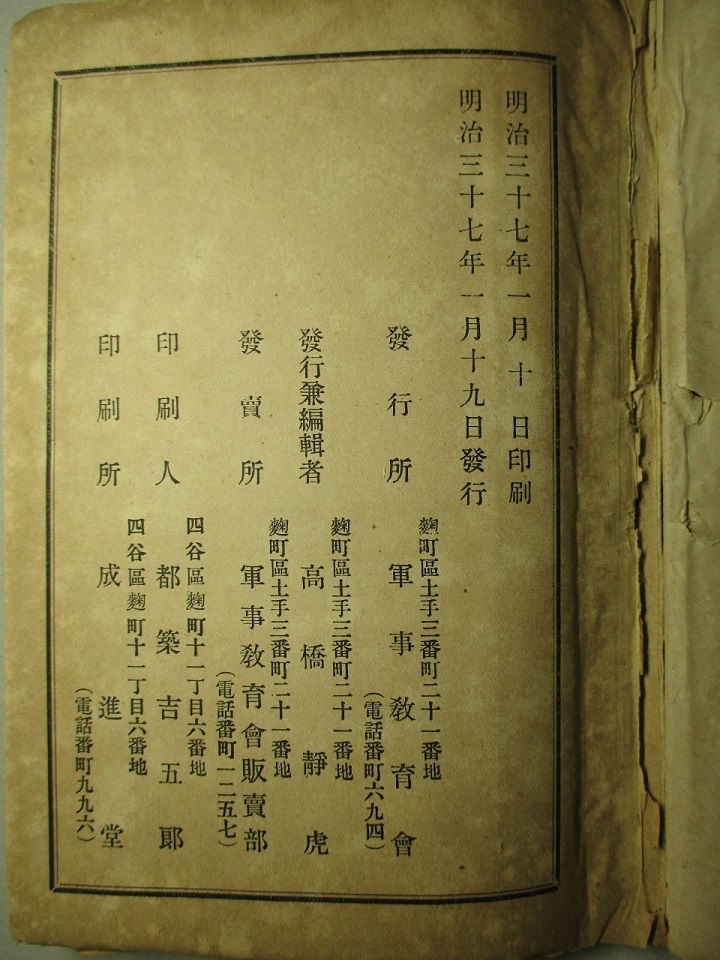 明治三十七年一月十日印刷
明治三十七年一月十九日發行
麴町區土手三番町二十一番地
發行所 軍事敎育會
(電話番町六九四)
麴町區土手三番町二十一番地
發行兼編輯者 高橋靜虎
麴町區土手三番町二十一番地
發賣所 軍事敎育會販賣部
(電話番町一二五七)
四谷區麴町十一丁目六番地
印刷人 都築吉五郎
四谷區麴町十一丁目六番地
印刷所 成進堂
(電話番町九九六)